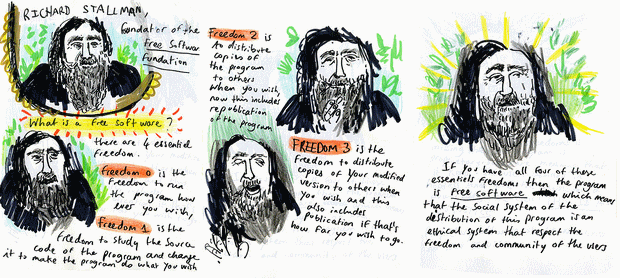 RICHARD STALLMAN
foundator of the
Free Software
Fundation
What is a free software?
there are 4 essential
Freedom.
Freedom 0 is the
Freedom to run
the program how
ever you wish,
Freedom 1 is the
freedom to study the source
code of the program and change
it to make the program do what you wish
Freedom 2 is
to distribute
copies of
the program
to others
when you wish,
now this includes
republication
of the program
FREEDOM 3 is the
Freedom to distribute
copies of your modified
version to others when
you wish and this
also includes
Publication if that's
how far you wish to go.
If you have all four of these
essentiels Freedoms then the program
is free software which means
that the social system of the
distribution of this program is an
ethical system that respect the
freedom and community of the users